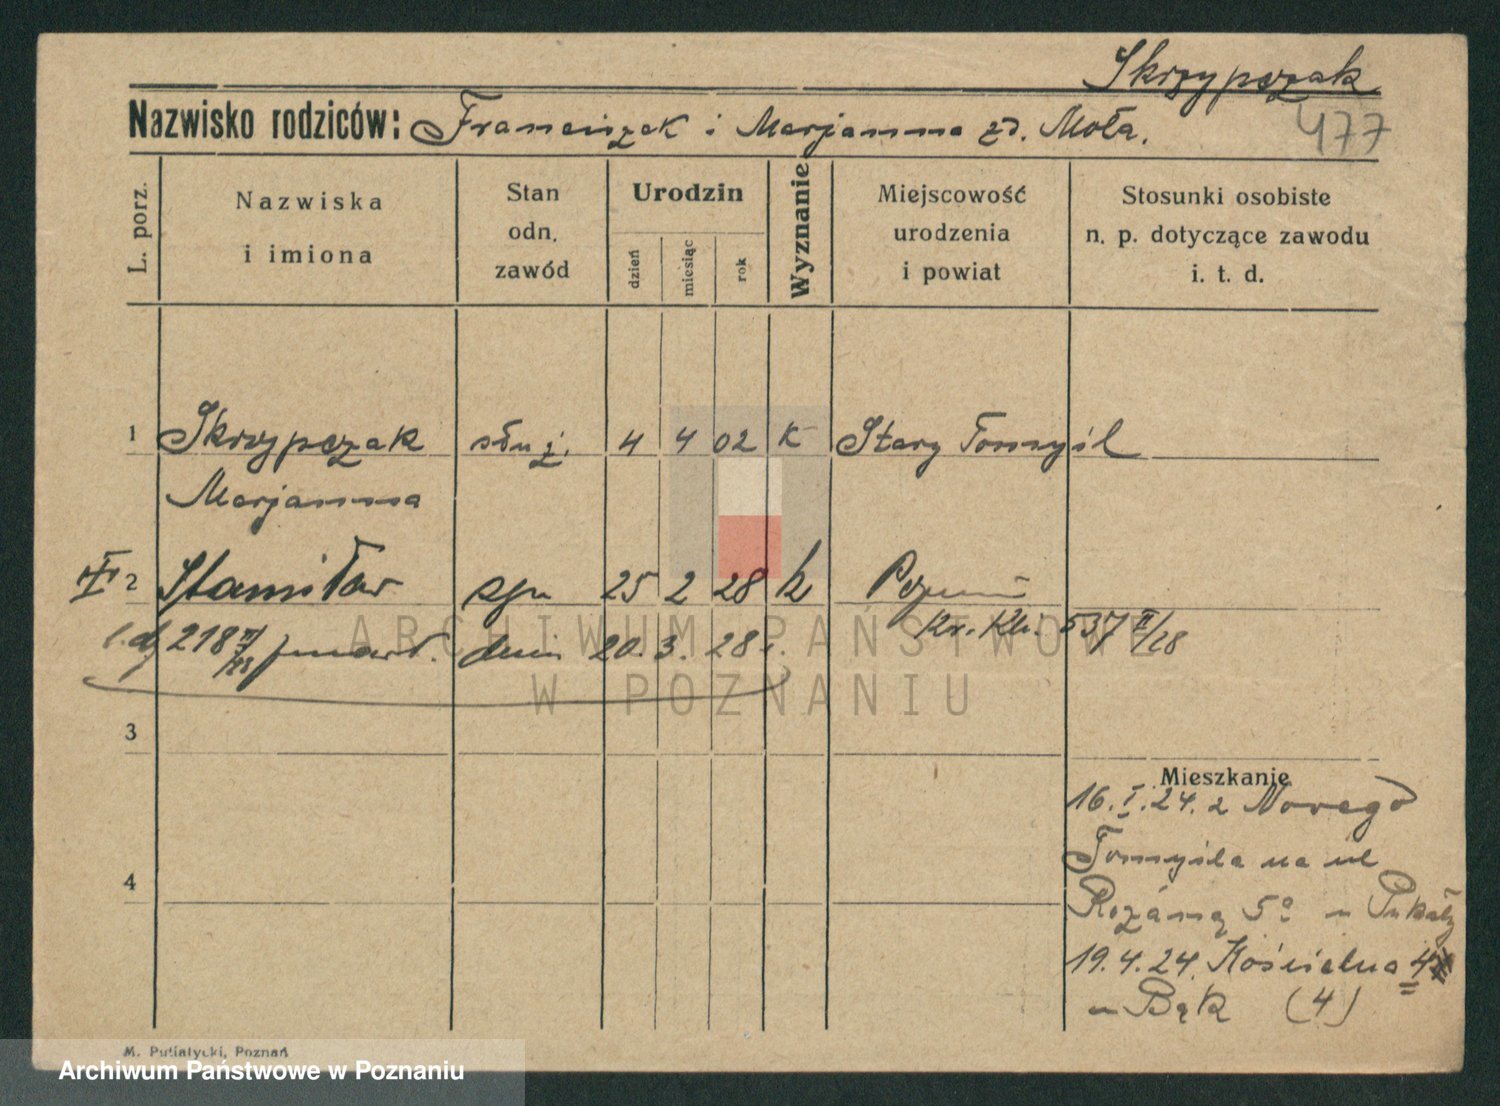 Skrzypczak
Nazwisko rodziców: Franciszek i Marjanna zd. Moła.
477
L. porz.
Nazwiska
i imiona
Stan
odn.
zawód
Urodzin
dzień
miesiąc
rok
Wyznanie
Miejscowość
urodzenia
i powiat
Stosunki osobiste
n. p. dotyczące zawodu
i. t. d.
1 Skrzypczak służ. 4 4 02 K Stary Tomyśl
Marjanna
2 Stanisław syn 25 2 28 k Poznań
Kr. Kli. 537 II/28
l. dz. 218 /28 zmarł. dnia 20. 3. 28 r.
3
Mieszkanie
16. I. 24. z Nowego
Tomyśla na ul
Różaną 5a u Pukały
4
19. 4. 24. Kościelna 4
u Bąk (4)
M. Putiatycki, Poznań
ARCHIWUM PAŃSTWOWE
W POZNANIU
Archiwum Państwowe w Poznaniu